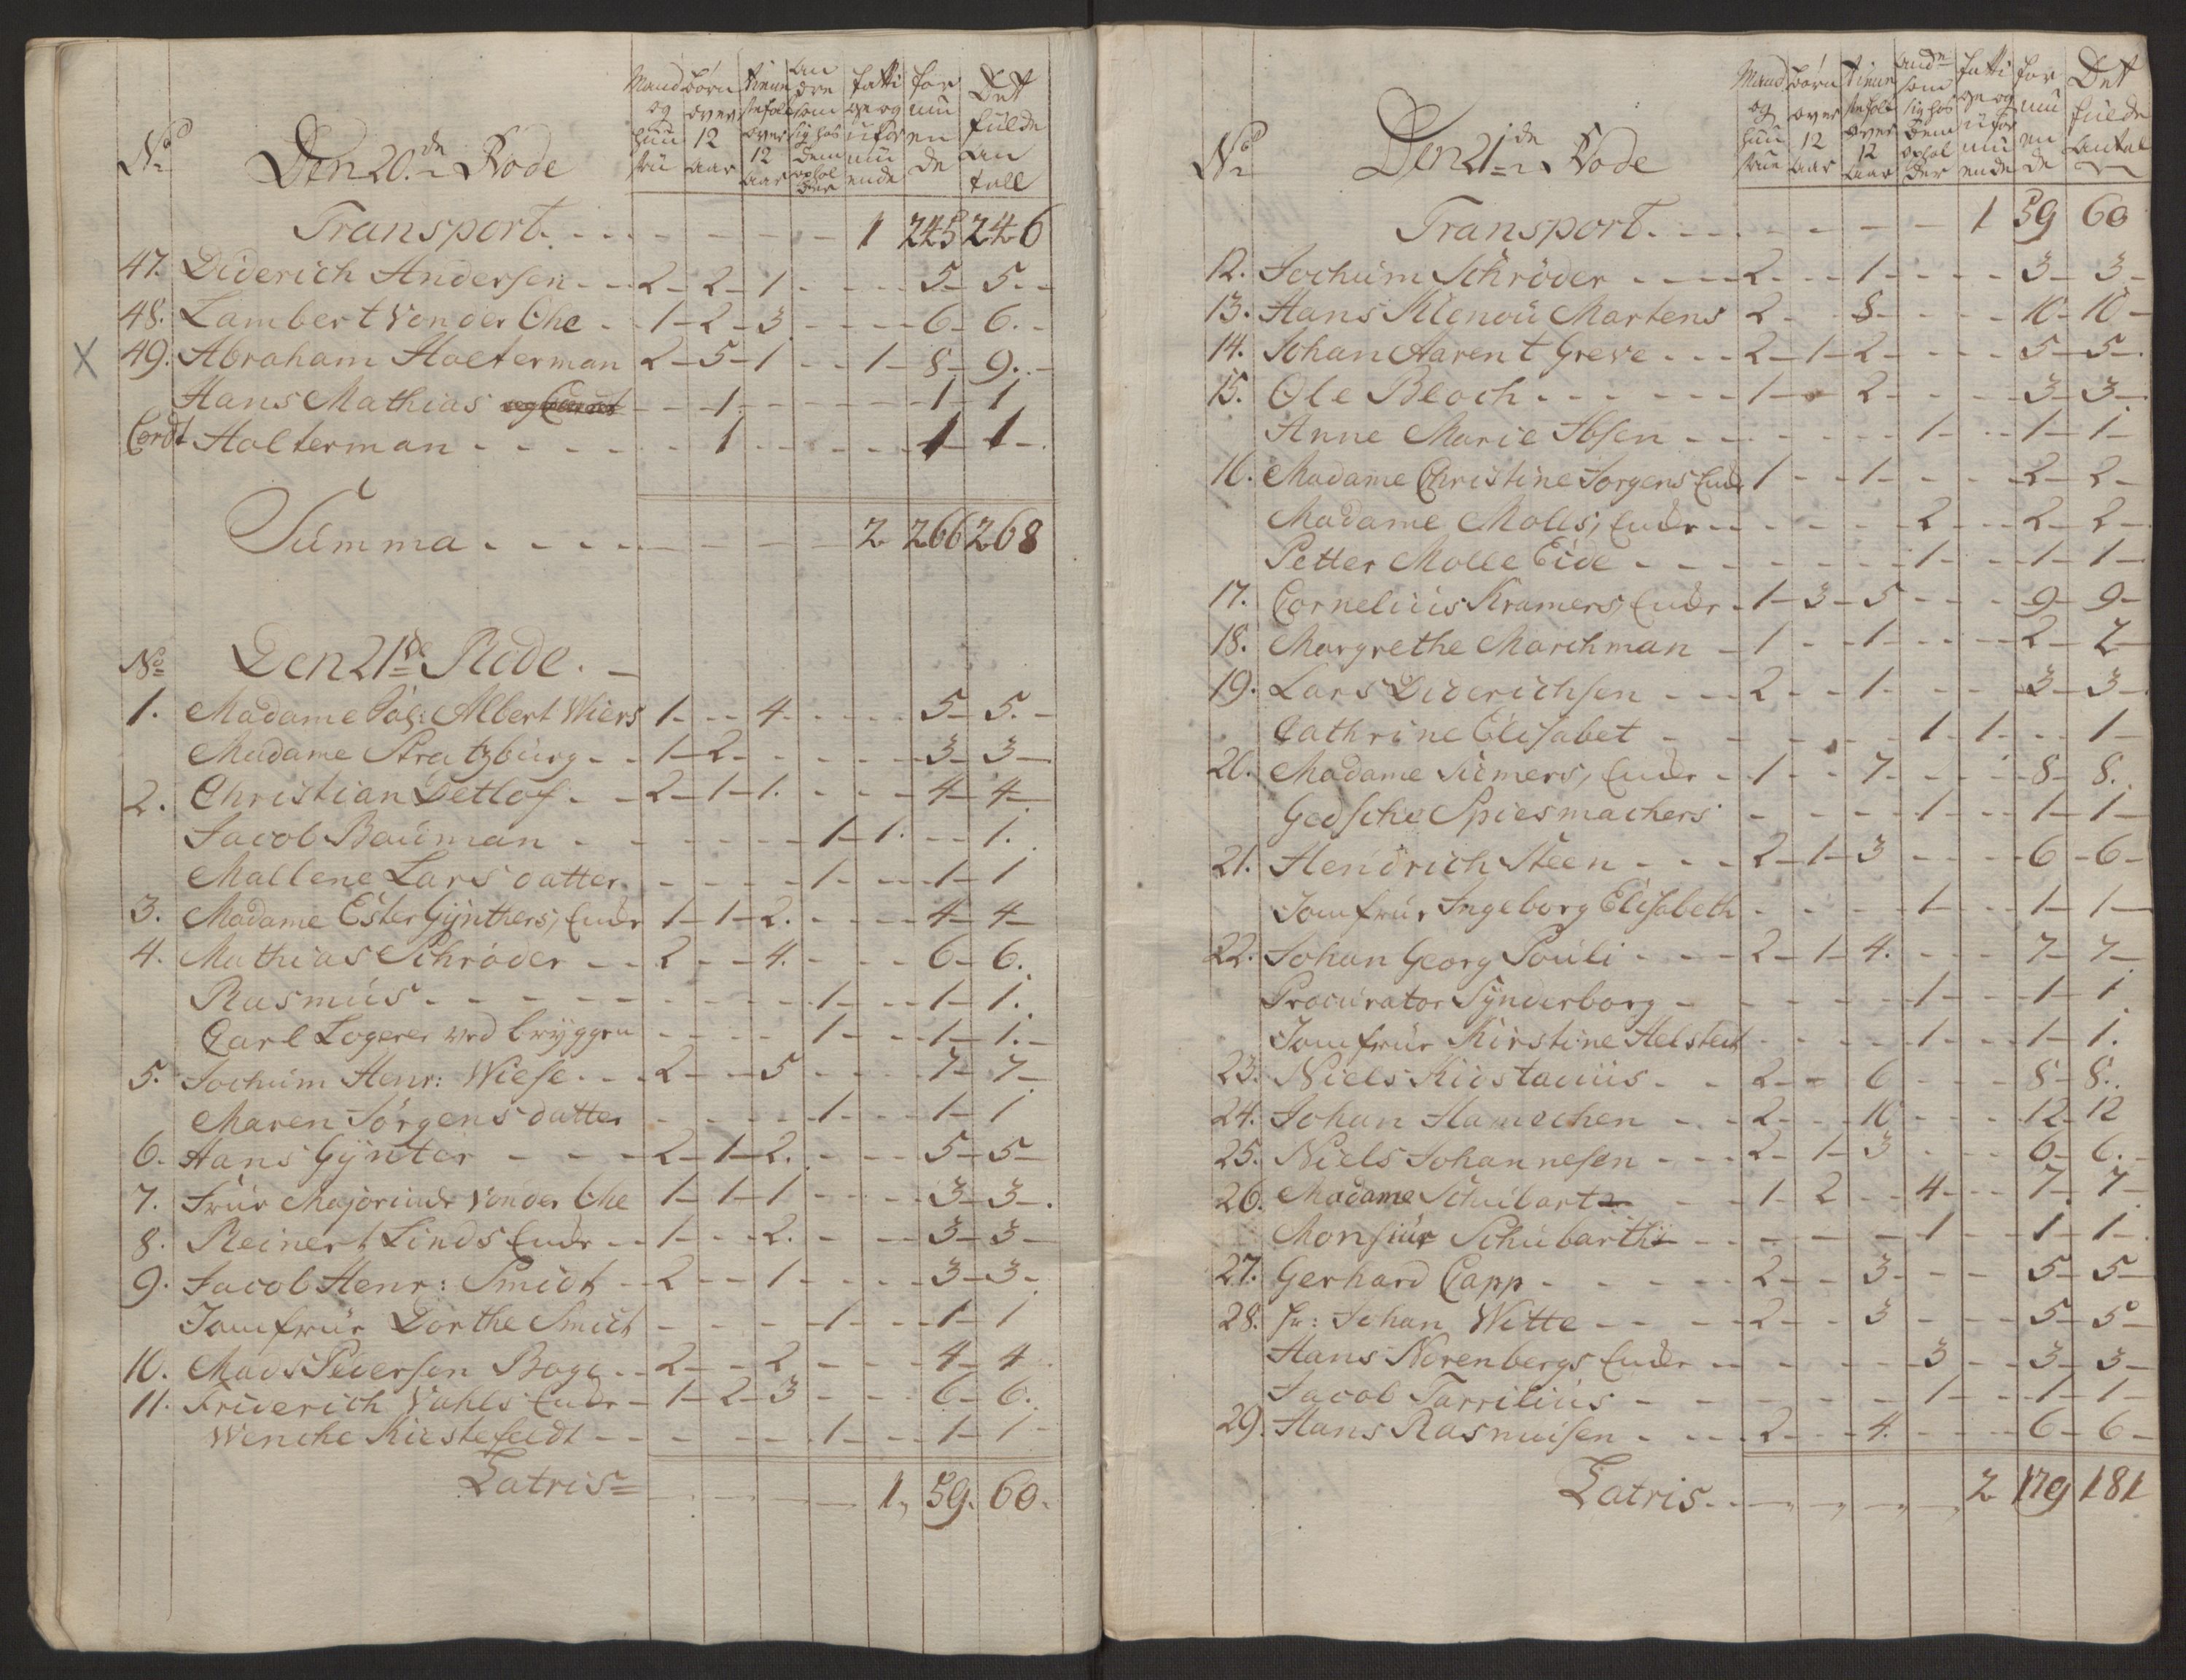 No Den 20de Rode Mand og Hustru Børn over 12 Aar tienneste folck over 12 Aar Andre som sig hos dem opholder fatti ge og ufor mu ende for mu en de Det fulde Antall
Transport. - - - - - - 1 245 246
47. Diderich Andersen - - 2 - 2 - 1 - - - - 5 - 5. -
48. Lambert Von der Ohe - 1 - 2 - 3 - - - 6 - 6. -
X 49. Abraham Holterman 2 - 5 - 1 - - 1 - 8 - 9. -
Hans Mathias - - 1 - - - - 1 - 1
Cordt Holterman - - - - - 1 - - - - 1 - 1 -
Summa - - - - - - - - 2 266 268
No Den 21de Rode. -
1. Madame Sal: Albert Wiers 1 - - 4 - - - - 5 - 5. -
Madame Stratzburg - - 1 - 2 - - - - - 3 - 3 -
2. Christian Detlof - - 2 - 1 - 1. - - - 4 - 4 -
Jacob Bauman - - - - - - 1 - 1. - - 1.
Mallene Lars datter. - - - - 1 - - - 1 - 1
3. Madame Ester Gÿnthers, Enckr 1 - 1 - 2. - - - 4 - 4 -
4. Mathias Schrøder - - 2 - - 4. - - - 6 - 6.
Rasmus - - - - - - - - - 1 - - - 1 - 1.
Carl Logerer ved bryggen - - - - 1 - - - 1 - 1. -
5. Jochum Henr: Wiese - - - 2 - - 5 - - - - 7 - 7 -
Maren Jørgens datter - - - - 1 - - - 1 - 1
6. Hans Gÿnter - - - 2 - 1 - 2. - - - 5 - 5 -
7. Frue Majorinde Von der Ohe 1 - 1 - 1 - - - - 3 - 3 - .
8. Reinert Linds Enckr - - 1 - - - 2. - - - 3 - 3 -
9. Jacob Henr: Smidt - - 2 - - 1 - - - - 3 - 3 -
Jomfrue Dorthe Smidt - - - - 1 - - - 1 - 1
10. Mads Pedersen Boge - - 2 - - 2 - - - - 4 - 4
11. Friderich Vahls Enckr - 1 - 2 - 3 - - - 6 - 6.
Wenche Kiestefeldt - - - - - - 1 - - - 1 - 1 -
Latris = - - - - - 1, 59. 60.
No Den 21de Rode Mand og Hustru Børn over 12 Aar tienneste folck over 12 Aar Andre som sig hos dem ophol der fatti ge og ufor mu ende for mu en de Det fulde Antal
Transport. - - - - - - 1 59 60
12. Jochum Schrøder - - - - 2 - - - 1 - - - - 3 - 3 -
13. Hans Klenou Martens 2 - - 8 - - - - 10 - 10 -
14. Johan Harent Greve - - - 2 - 1 - 2 - - - - 5 - 5 -
15. Ole Bloch - - - - - - 1 - - 2 - - - - 3 - 3 -
Anne Marie Ibsen - - - - - - 1 - - - 1 - 1 -
16. Madame Christine Jørgens Enckr 1 - - 1 - - - - 2 - 2 -
Madame Molls, Enckr - - - - - 2 - - - 2 - 2 -
Petter Molle Eide - - - - - - - 1 - - - 1 - 1 -
17. Cornelius Kramers, Enckr - 1 - 3 - 5 - - - 9 - 9 -
18. Margrethe Marchman - 1 - - 1 - - - - 2 - 2 -
19. Lars Diderichsen - - - 2 - - 1 - - - - 3 - 3 -
Cathrine Elisabet - - - - - 1 - 1 - - - 1 -
20. Madame Siemers, Enckr - 1 - - 7 - - - - 8 - 8.
Gedsche Spiesmachers - - - - 1 - - - 1 - 1 -
21. Hendrich Steen - - - 2 - 1 - 3 - - - 6 - 6 -
Jomfrur Ingeborg Elisabeth - - - - 1 - - - 1 - 1 -
22. Johan Georg Pouli - - - 2 - 1 - 4. - - - 7 - 7 -
Procurator Synderborg - - - - - - 1 - - - 1 - 1
Jomfrur Kirstine Helsted - - - - 1 - - - 1 - 1.
23. Niels Kiistanius - - 2 - - 6 - - - 8 - 8.
24. Johan Hamechen - - - 2 - - - 10 - - - - 12 - 12
25. Niels Johannesen - - - 2 - 1 - 3 - - - 6 - 6. -
26. Madame Schubart - - 1 - 2 - - 4 - - - 7 - 7 -
Monsiur Schubarth - - - - - - 1 - 1 - 1 -
27. Gerhard Capp - - - - - 2 - - 3 - - - 5 - 5 -
28. Hr: Johan Witte - - - - 2 - - 3 - - - 5 - 5 -
Hans Norenbergs Enckr - - - - - 3 - - 3 - 3 -
Jacob Tarrilius - - - - - - 1 - - - 1 - 1 -
29. Hans Rasmusen - - - - 2 - - - 4. - - - - 6 - 6 -
Latris - - - - - - 2 179 181